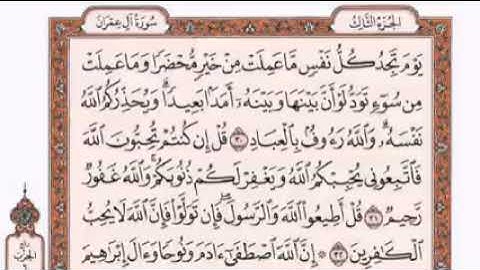 سُورَةُ آلِ عِمْرَانَ
الجُزْءُ الثَّالِثُ
يَوْمَ تَجِدُ كُلُّ نَفْسٍ مَّا عَمِلَتْ مِنْ خَيْرٍ مُّحْضَرًا وَمَا عَمِلَتْ
مِن سُوٓءٍ تَوَدُّ لَوْ أَنَّ بَيْنَهَا وَبَيْنَهُۥٓ أَمَدًۢا بَعِيدًا ۗ وَيُحَذِّرُكُمُ ٱللَّهُ
نَفْسَهُۥ ۗ وَٱللَّهُ رَءُوفٌۢ بِٱلْعِبَادِ ٣٠ قُلْ إِن كُنتُمْ تُحِبُّونَ ٱللَّهَ
فَٱتَّبِعُونِى يُحْبِبْكُمُ ٱللَّهُ وَيَغْفِرْ لَكُمْ ذُنُوبَكُمْ ۗ وَٱللَّهُ غَفُورٌ
رَّحِيمٌ ٣١ قُلْ أَطِيعُوا۟ ٱللَّهَ وَٱلرَّسُولَ ۖ فَإِن تَوَلَّوْا۟ فَإِنَّ ٱللَّهَ لَا يُحِبُّ
ٱلْكَٰفِرِينَ ٣٢ ۞ إِنَّ ٱللَّهَ ٱصْطَفَىٰٓ ءَادَمَ وَنُوحًا وَءَالَ إِبْرَٰهِيمَ